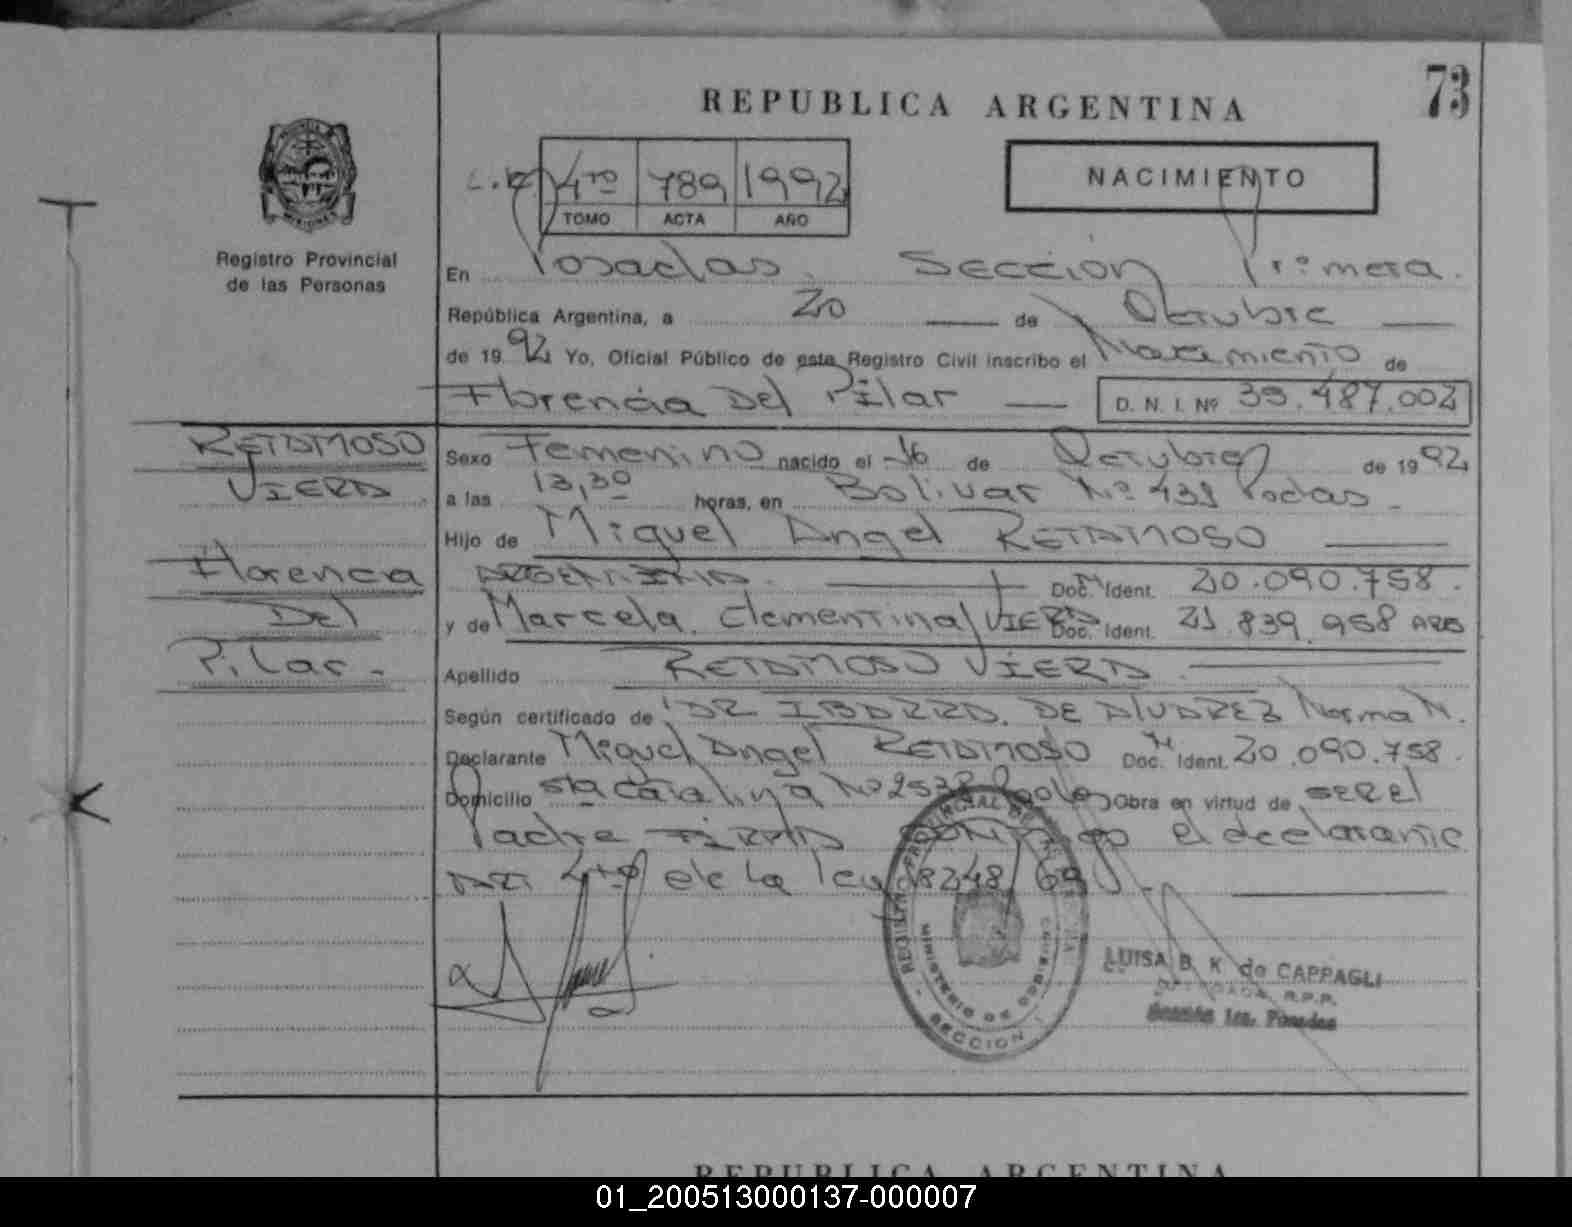 73
REPUBLICA ARGENTINA
4to 789 1992
TOMO ACTA AÑO
NACIMIENTO
Registro Provincial
de las Personas
En Posadas. Sección Primera.
República Argentina, a 20 de Octubre
de 1992 Yo, Oficial Público de este Registro Civil inscribo el Nacimiento de
Florencia Del Pilar D. N. I. Nº 39.487.002
RETAMOSO
VIERA
Florencia
Del
Pilar.
Sexo Femenino nacido el 16 de Octubre de 1992
a las 13,30 horas, en Bolivar Nº 439 Podas.
Hijo de Miguel Angel RETAMOSO
ARGENTINA. Doc. Ident. 20.090.758.
y de Marcela Clementina VIERA Doc. Ident. 21.839.958 ARG
Apellido RETAMOSO VIERA
Según certificado de DRA IBARRA DE ALVAREZ Norma N.
Declarante Miguel Angel RETAMOSO Doc. Ident. 20.090.758.
Domicilio Sta Catalina Nº 2538 Obra en virtud de ser el
Padre FIRMA CONMIGO el declarante
ART 4to de la ley 18248/69
REGISTRO PROVINCIAL DE
MINISTERIO DE GOBIERNO
SECCION
LUISA B. K. de CAPPAGLI
R.P.P.
Sección 1ra. Posadas
REPUBLICA ARGENTINA
01_200513000137-000007